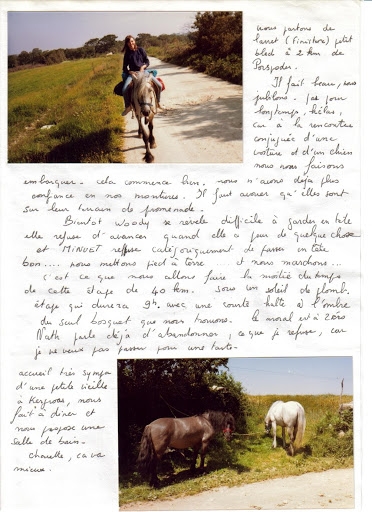 nous partons de
Lanret (Finistère) petit
bled à 2 km de
Porspoder.
Il fait beau, nous
jubilons. pas pour
longtemps, hélas,
car à la rencontre
conjuguée d'une
voiture et d'un chien
nous nous faisons
embarquer. cela commence bien. nous n'avons déjà plus
confiance en nos montures. Il faut avouer qu'elles sont
sur leur terrain de promenade.
Bientôt WOODY se révèle difficile à garder en tête
elle refuse d'avancer quand elle a peur de quelque chose
et MINUET refuse catégoriquement de passer en tête
bon..... nous mettons pied à terre..... et nous marchons...
c'est ce que nous allons faire la moitié du temps
de cette étape de 40 km. sous un soleil de plomb.
étape qui durera 9h. avec une courte halte à l'ombre
du seul bosquet que nous trouvons. le moral est à zéro
Nath parle déjà d'abandonner, ce que je refuse, car
je ne veux pas passer pour une tarte.
accueil très sympa
d'une petite vieille
à Kergroas, nous
fait à dîner et
nous propose une
salle de bain.
chouette, ça va
mieux.